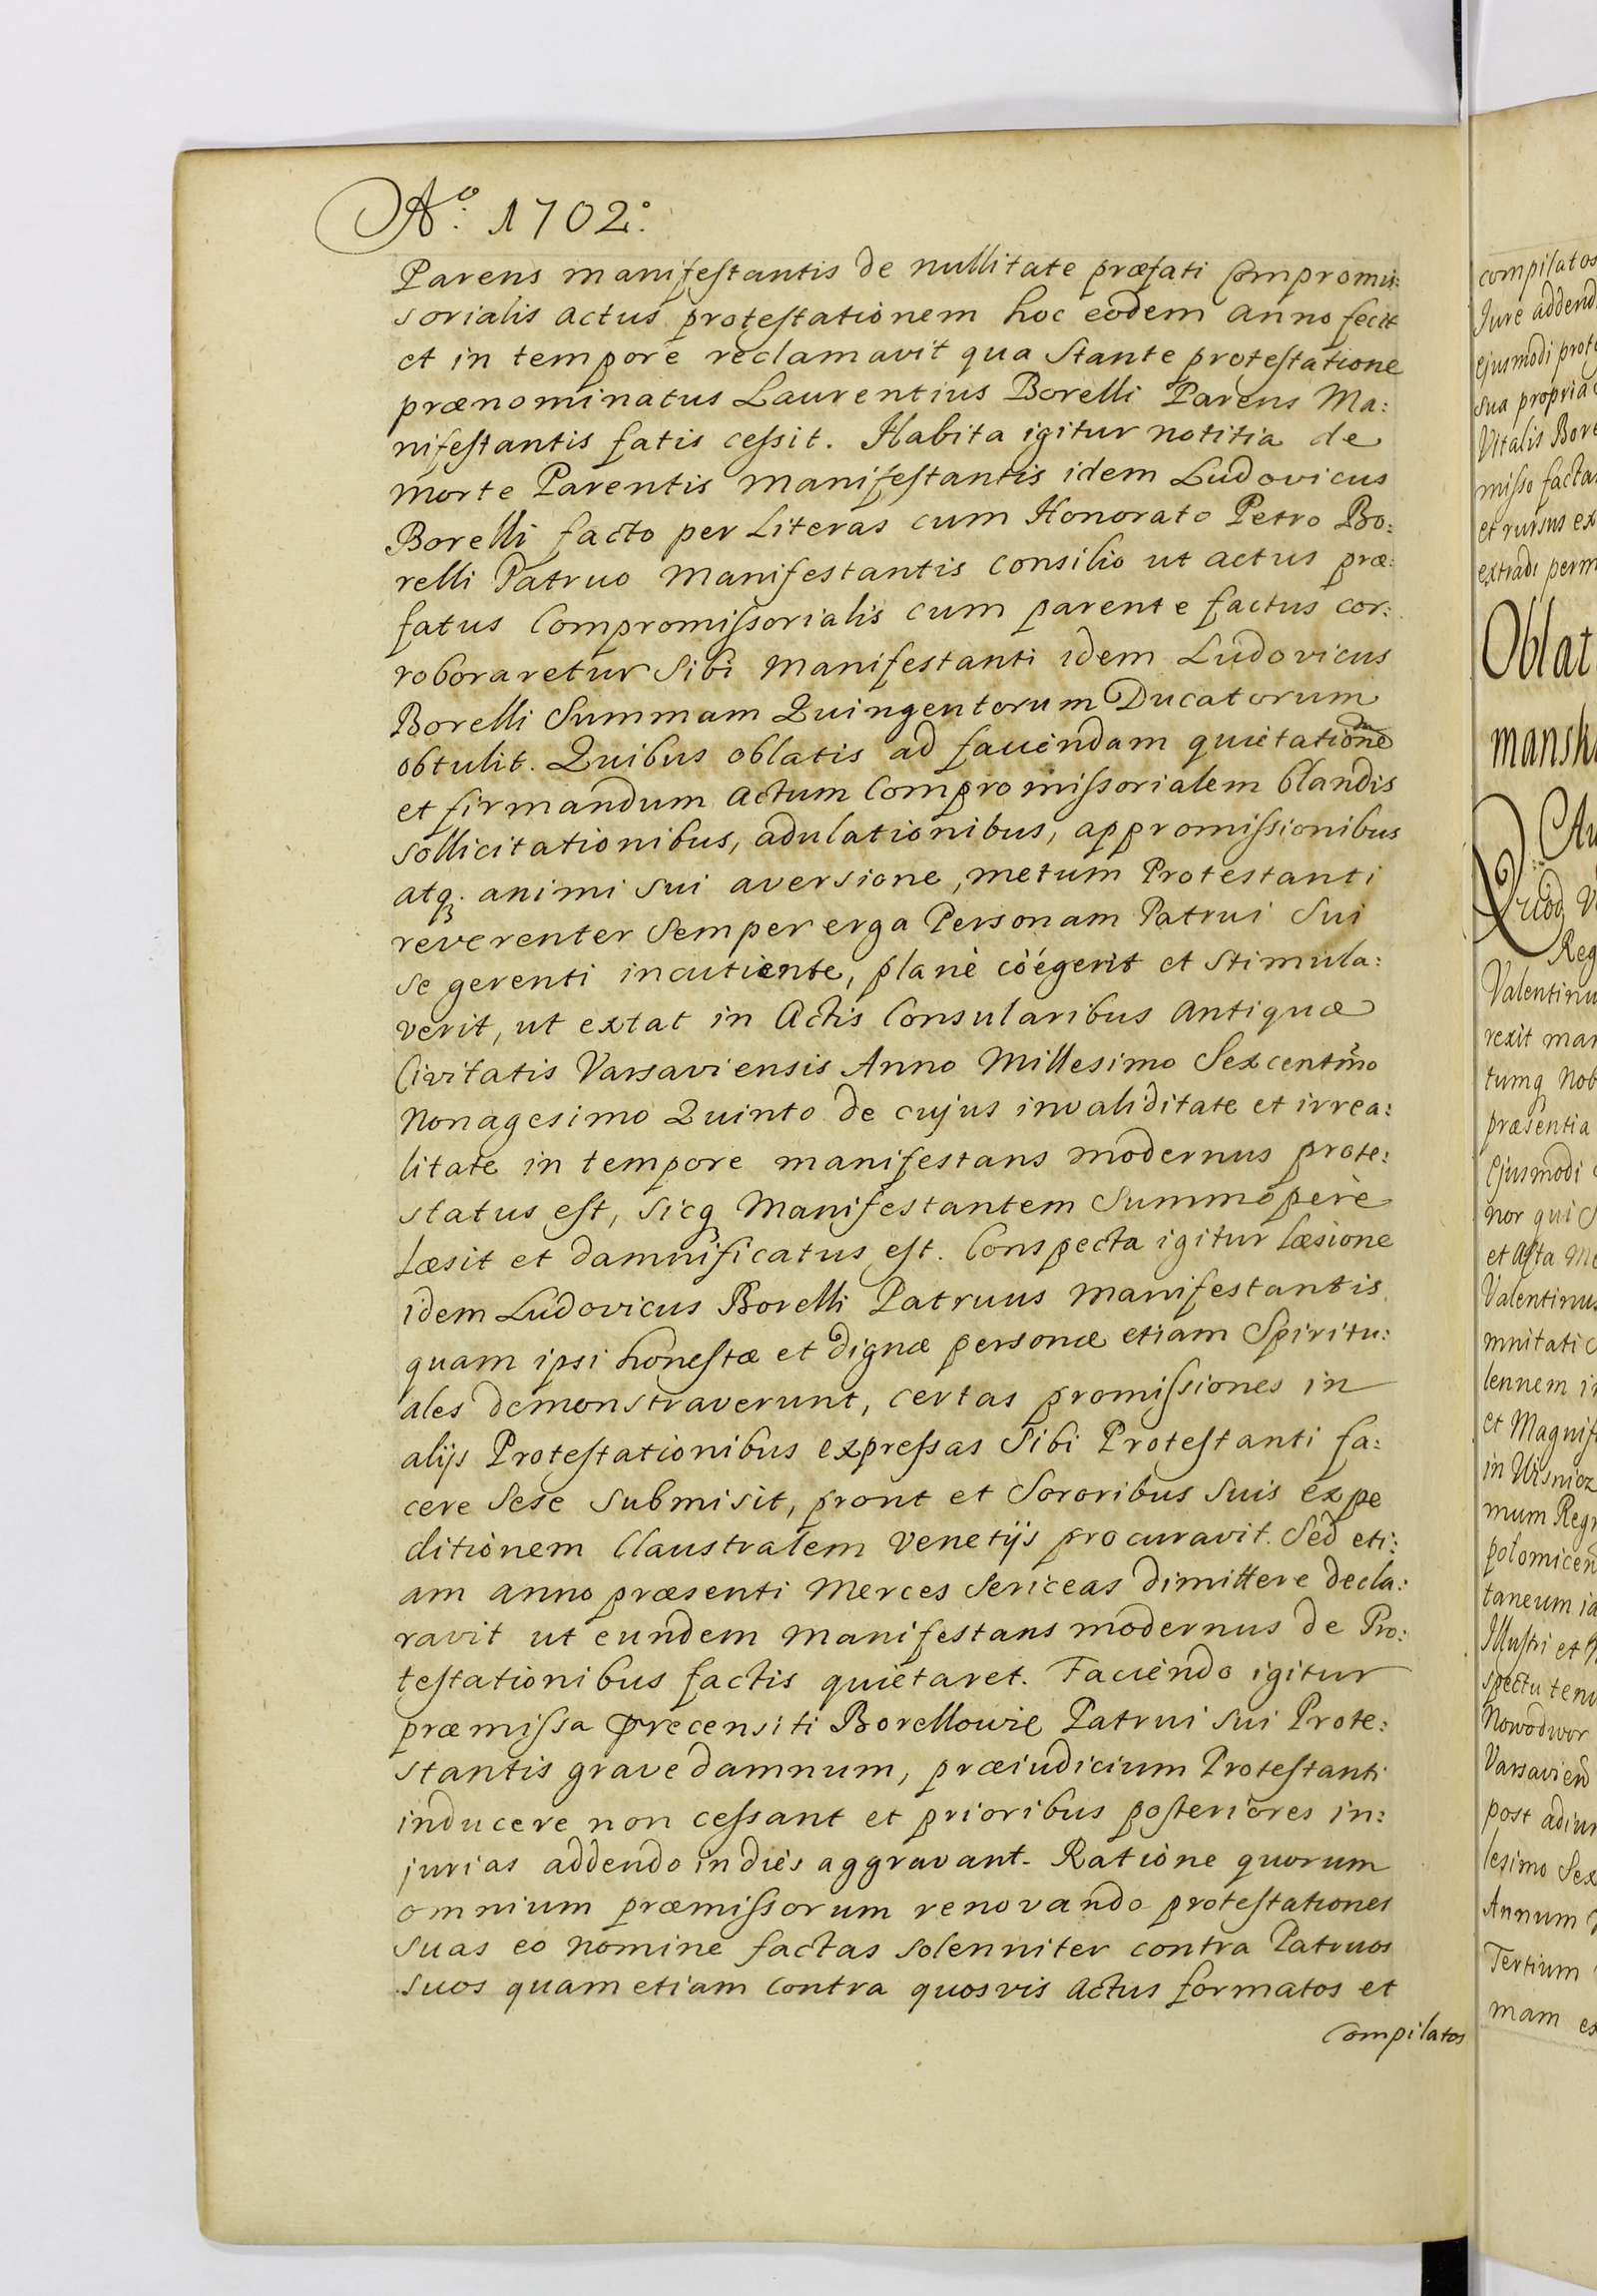 Aº. 1702º.
Parens manifestantis de nullitate præfati Compromis:
sorialis actus protestationem hoc eodem anno fecit
et in tempore reclamavit qua Stante protestatione
prænominatus Laurentius Borelli Parens Ma:
nifestantis fatis cessit. Habita igitur notitia de
morte Parentis manifestantis idem Ludovicus
Borelli facto per Literas cum Honorato Petro Bo:
relli Patruo Manifestantis Consilio ut actus præ:
fatus Compromissorialis cum parente factus cor:
roboraretur Sibi Manifestanti idem Ludovicus
Borelli Summam Quingentorum Ducatorum
obtulit. Quibus oblatis ad faciendam quietatione
et firmandum actum Compromissorialem blandis
sollicitationibus, adulationibus, appromissionibus
atq. animi sui aversione, metum Protestanti
reverenter Semper erga Personam Patrui Sui
se gerenti incutiente, planè cöegerit et stimula:
verit, ut extat in Actis Consularibus Antiquæ
Civitatis Varsaviensis Anno Millesimo Sexcentmo
Nonagesimo Quinto de cujus invaliditate et irrea:
litate in tempore manifestans modernus prote:
status est, sicq Manifestantem Summopere
Læsit et damnificatus est. Conspecta igitur læsione
idem Ludovicus Borelli Patruus manifestantis
quam ipsi honestæ et dignæ personæ etiam Spiritu:
ales demonstraverunt, certas promissiones in
alijs Protestationibus expressas Sibi Protestanti fa:
cere Sese submisit, prout et Sororibus suis expe
ditionem Claustralem Venetijs procuravit. Sed eti:
am anno præsenti Merces Sericeas dimittere decla:
ravit ut eundem Manifestans modernus de Pro:
testationibus factis quietaret. Faciendo igitur
præmissa precensiti Borellowie Patrui sui Prote:
stantis grave damnum, præiudicium Protestanti
inducere non cessant et prioribus posteriores in:
jurias addendo in dies aggravant. Ratione quorum
omnium præmissorum renovando protestationes
suas eo nomine factas solenniter contra Patruos
suos quam etiam contra quosvis actus formatos et
Compilatos
compilatos
Jure addend
ejusmodi prot
sua propria
Vitalis Bore
misso facta
et rursus ex
extradi perm
Oblat
mansk
Reg
Valentinu
rexit man
tumq Nob
præsentia
Ejusmodi
nor qui
et Asta Me
Valentinus
mnitati
lennem in
et Magnif
in Wisnioz
mum Regn
polomicen
taneum ia
Illustri et
spectu ten
Nowodwor
Varsavien
post adiun
lesimo Sex
Annum
Tertium
mam ex